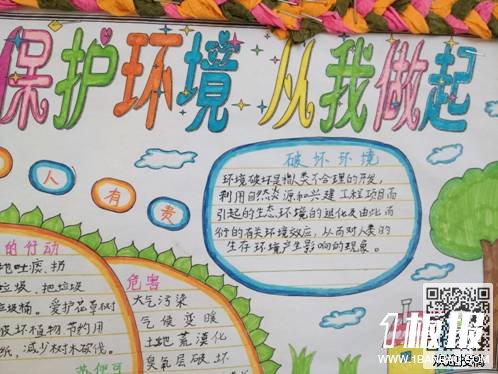 保护环境 从我做起
人有责
破坏环境
环境破坏是指人类不合理的开发,
利用自然资源和兴建工程项目而
引起的生态环境的退化及由此而
衍的有关环境效应,从而对人类的
生存环境产生影响的现象。
的行动
地吐痰、扔
垃圾、把垃圾
垃圾桶。爱护花草树
破坏植物 节约用
纸,减少树木砍伐。
危害
大气污染
气候变暖
土地荒漠化
臭氧层破坏
1板报
WWW.1BANBAO.COM